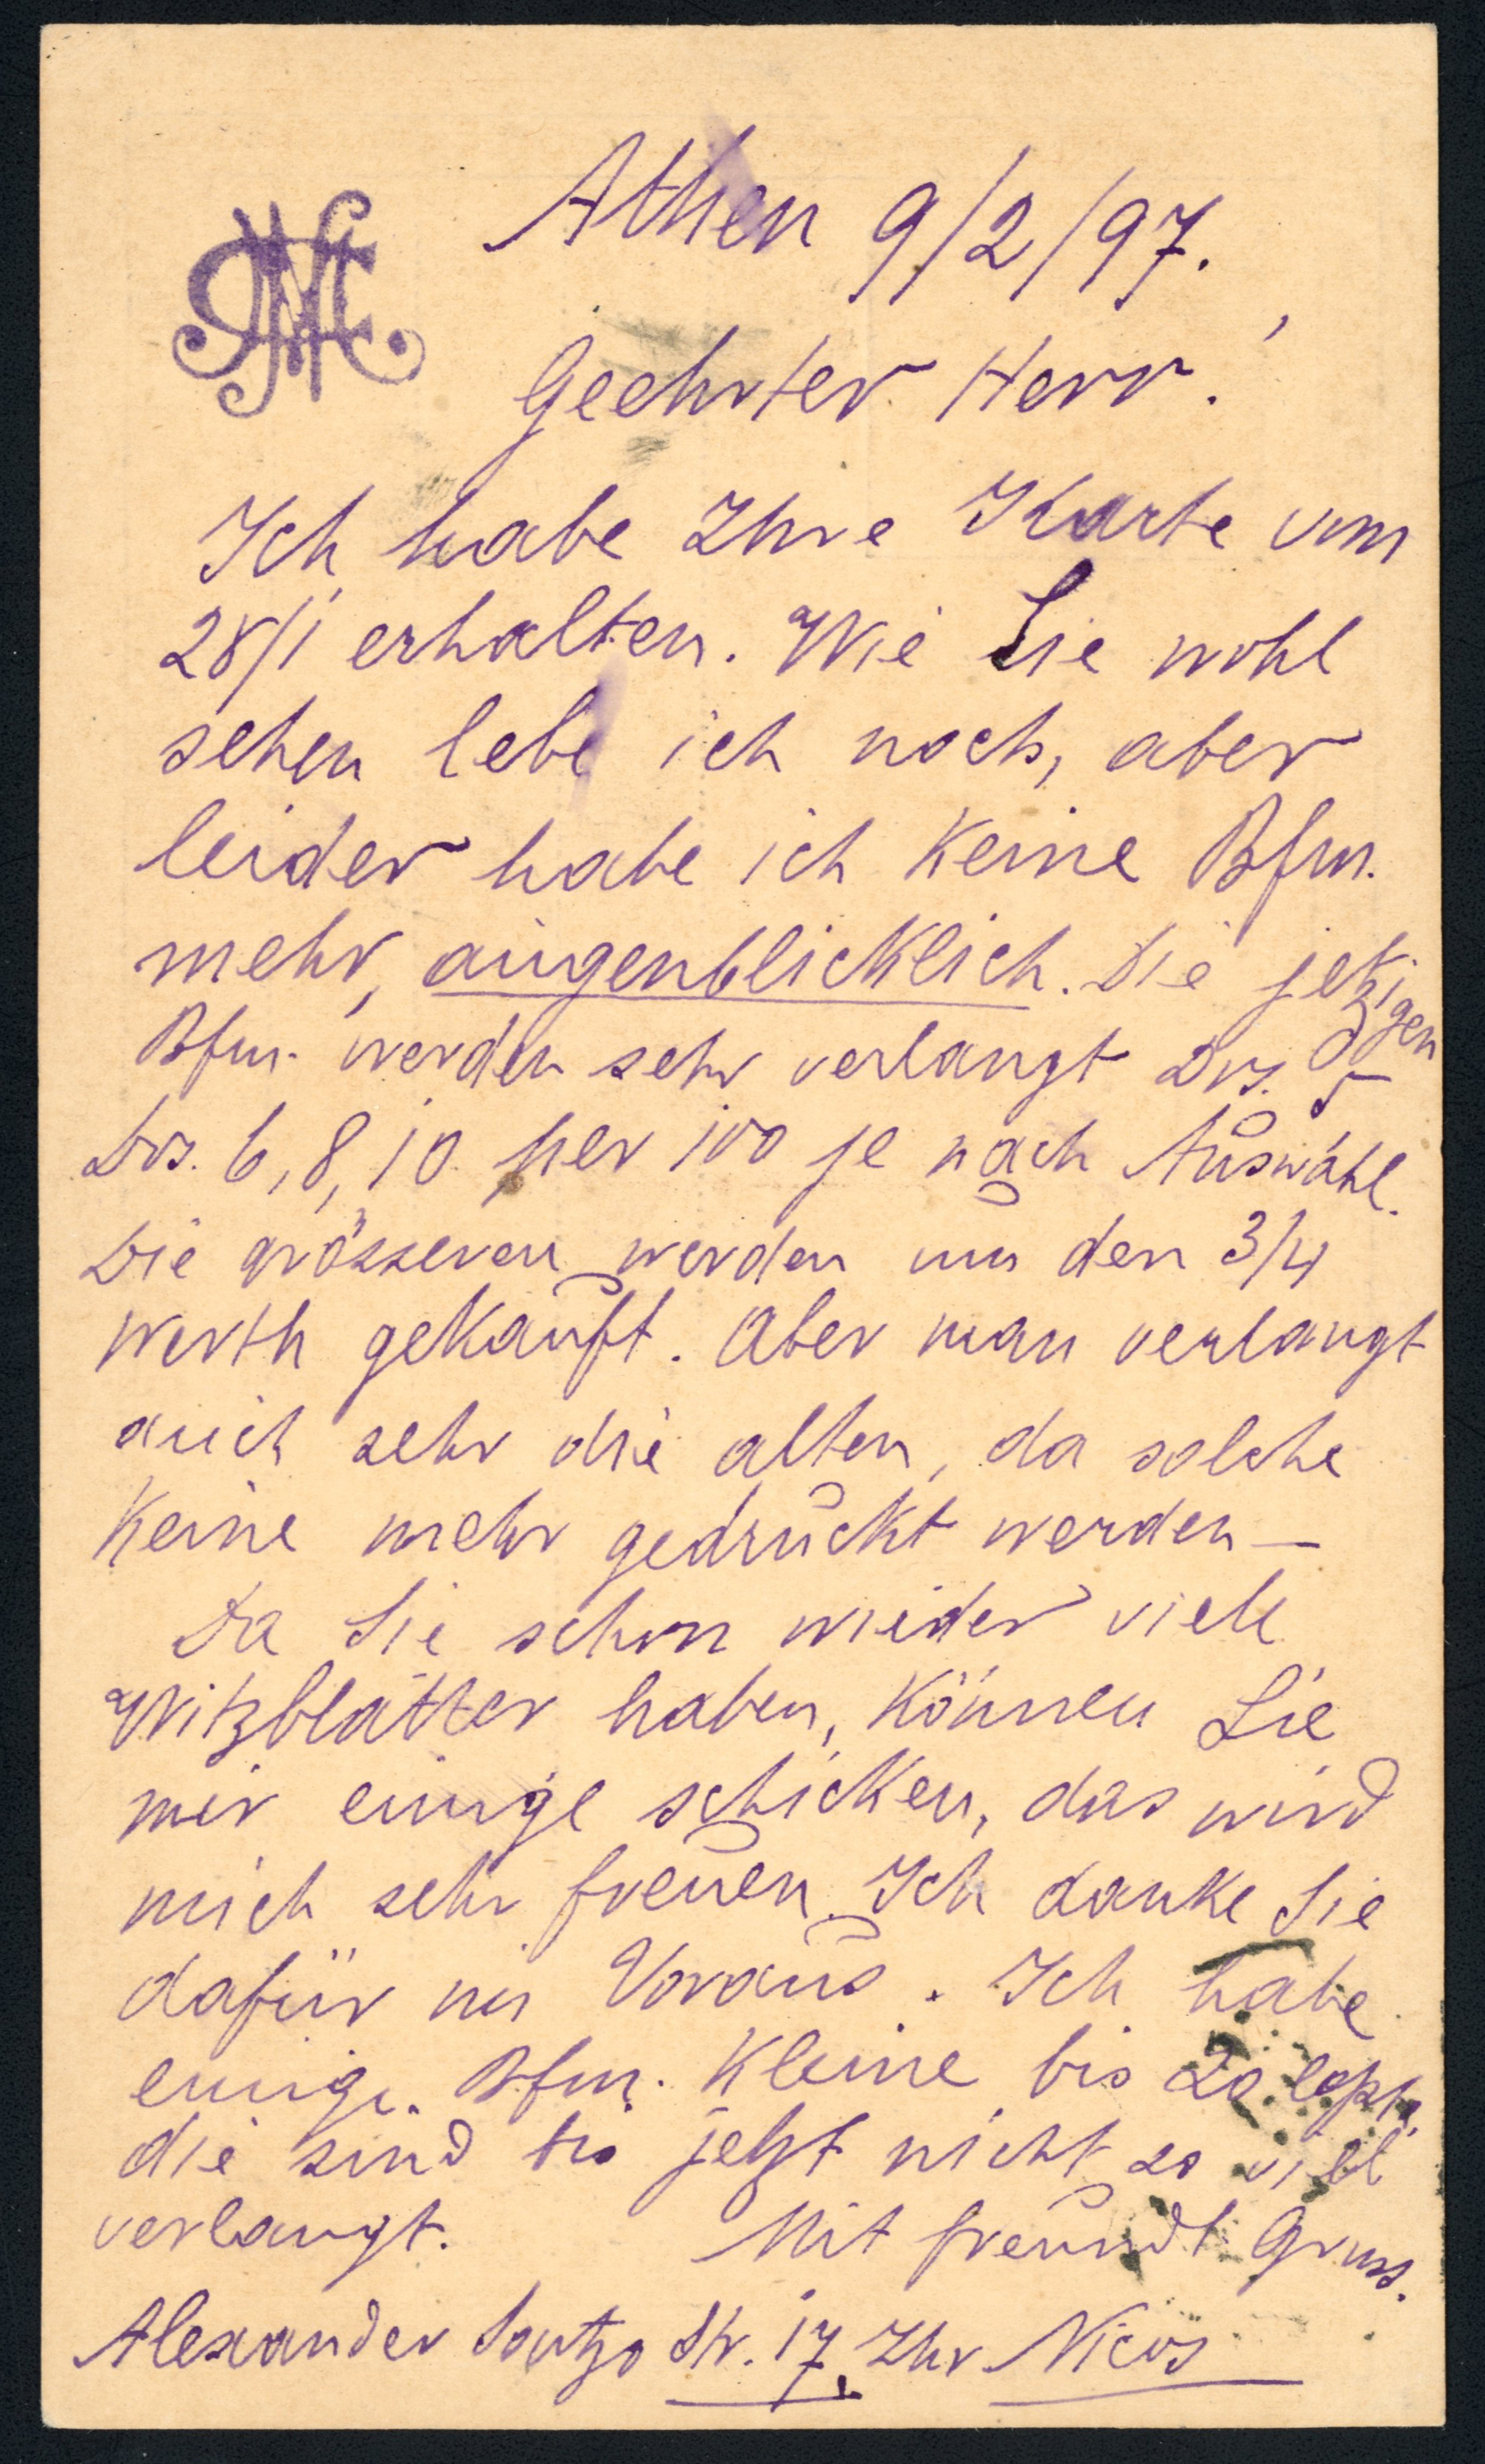 Athen 9/2/97.
Geehrter Herr!
Ich habe Ihre Karte vom
28/1 erhalten. Wie Sie wohl
sehen lebe ich noch, aber
leider habe ich keine Bfm.
mehr, augenblicklich. Die jetzigen
Bfm. werden sehr verlangt Drs. 5
Drs. 6, 8, 10 per 100 je nach Auswahl.
Die grösseren werden um den 3/4
Werth gekauft. Aber man verlangt
auch sehr die alten, da solche
keine mehr gedruckt werden —
Da Sie schon wieder viele
Witzblätter haben, können Sie
mir einige schicken, das wird
mich sehr freuen. Ich danke Sie
dafür im Voraus. Ich habe
einige Bfm. kleine bis 20 lepta,
die sind bis jetzt nicht so viel
verlangt. Mit freundl Gruss.
Alexander Soutzo Str. 17. Ihr Nicos